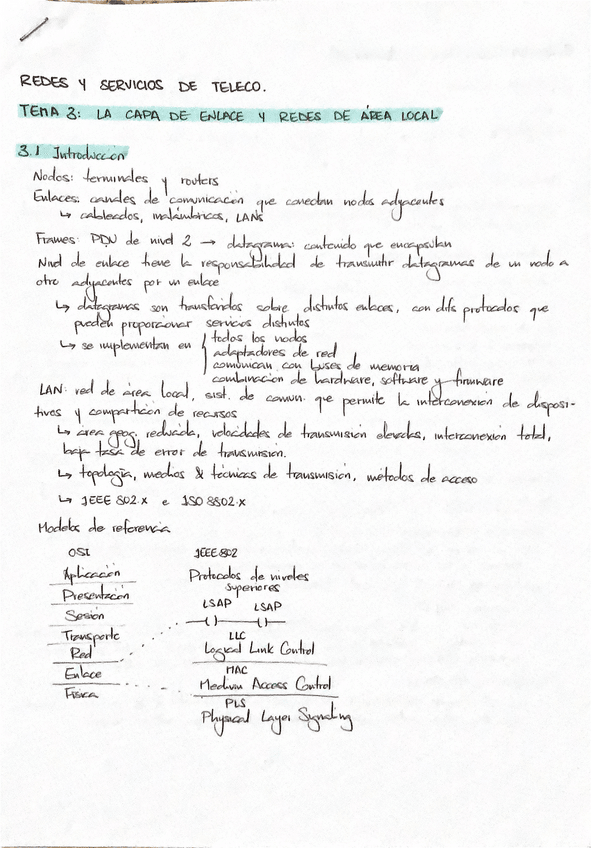 REDES Y SERVICIOS DE TELECO.
TEMA 3: LA CAPA DE ENLACE Y REDES DE ÁREA LOCAL
3.1 Introducción
Nodos: terminales y routers
Enlaces: canales de comunicación que conectan nodos adyacentes
↳ cableados, inalámbricos, LANs
Frames: PDU de nivel 2 → datagrama: contenido que encapsulan
Nivel de enlace tiene la responsabilidad de transmitir datagramas de un nodo a
otro adyacentes por un enlace
↳ datagramas son transferidos sobre distintos enlaces, con difs protocolos que
pueden proporcionar servicios distintos
↳ se implementan en { todos los nodos
adaptadores de red
comunican con buses de memoria
combinación de hardware, software y firmware
LAN: red de área local, sist. de comun. que permite la interconexión de disposi-
tivos y compartición de recursos
↳ área geog. reducida, velocidades de transmisión elevadas, interconexión total,
baja tasa de error de transmisión.
↳ topología, medios & técnicas de transmisión, métodos de acceso
↳ IEEE 802.X e ISO 8802.X
Modelos de referencia
OSI IEEE802
Aplicación Protocolos de niveles
Presentación superiores
Sesión LSAP LSAP
Transporte LLC
Red Logical Link Control
Enlace MAC
Física Medium Access Control
PLS
Physical Layer Signaling